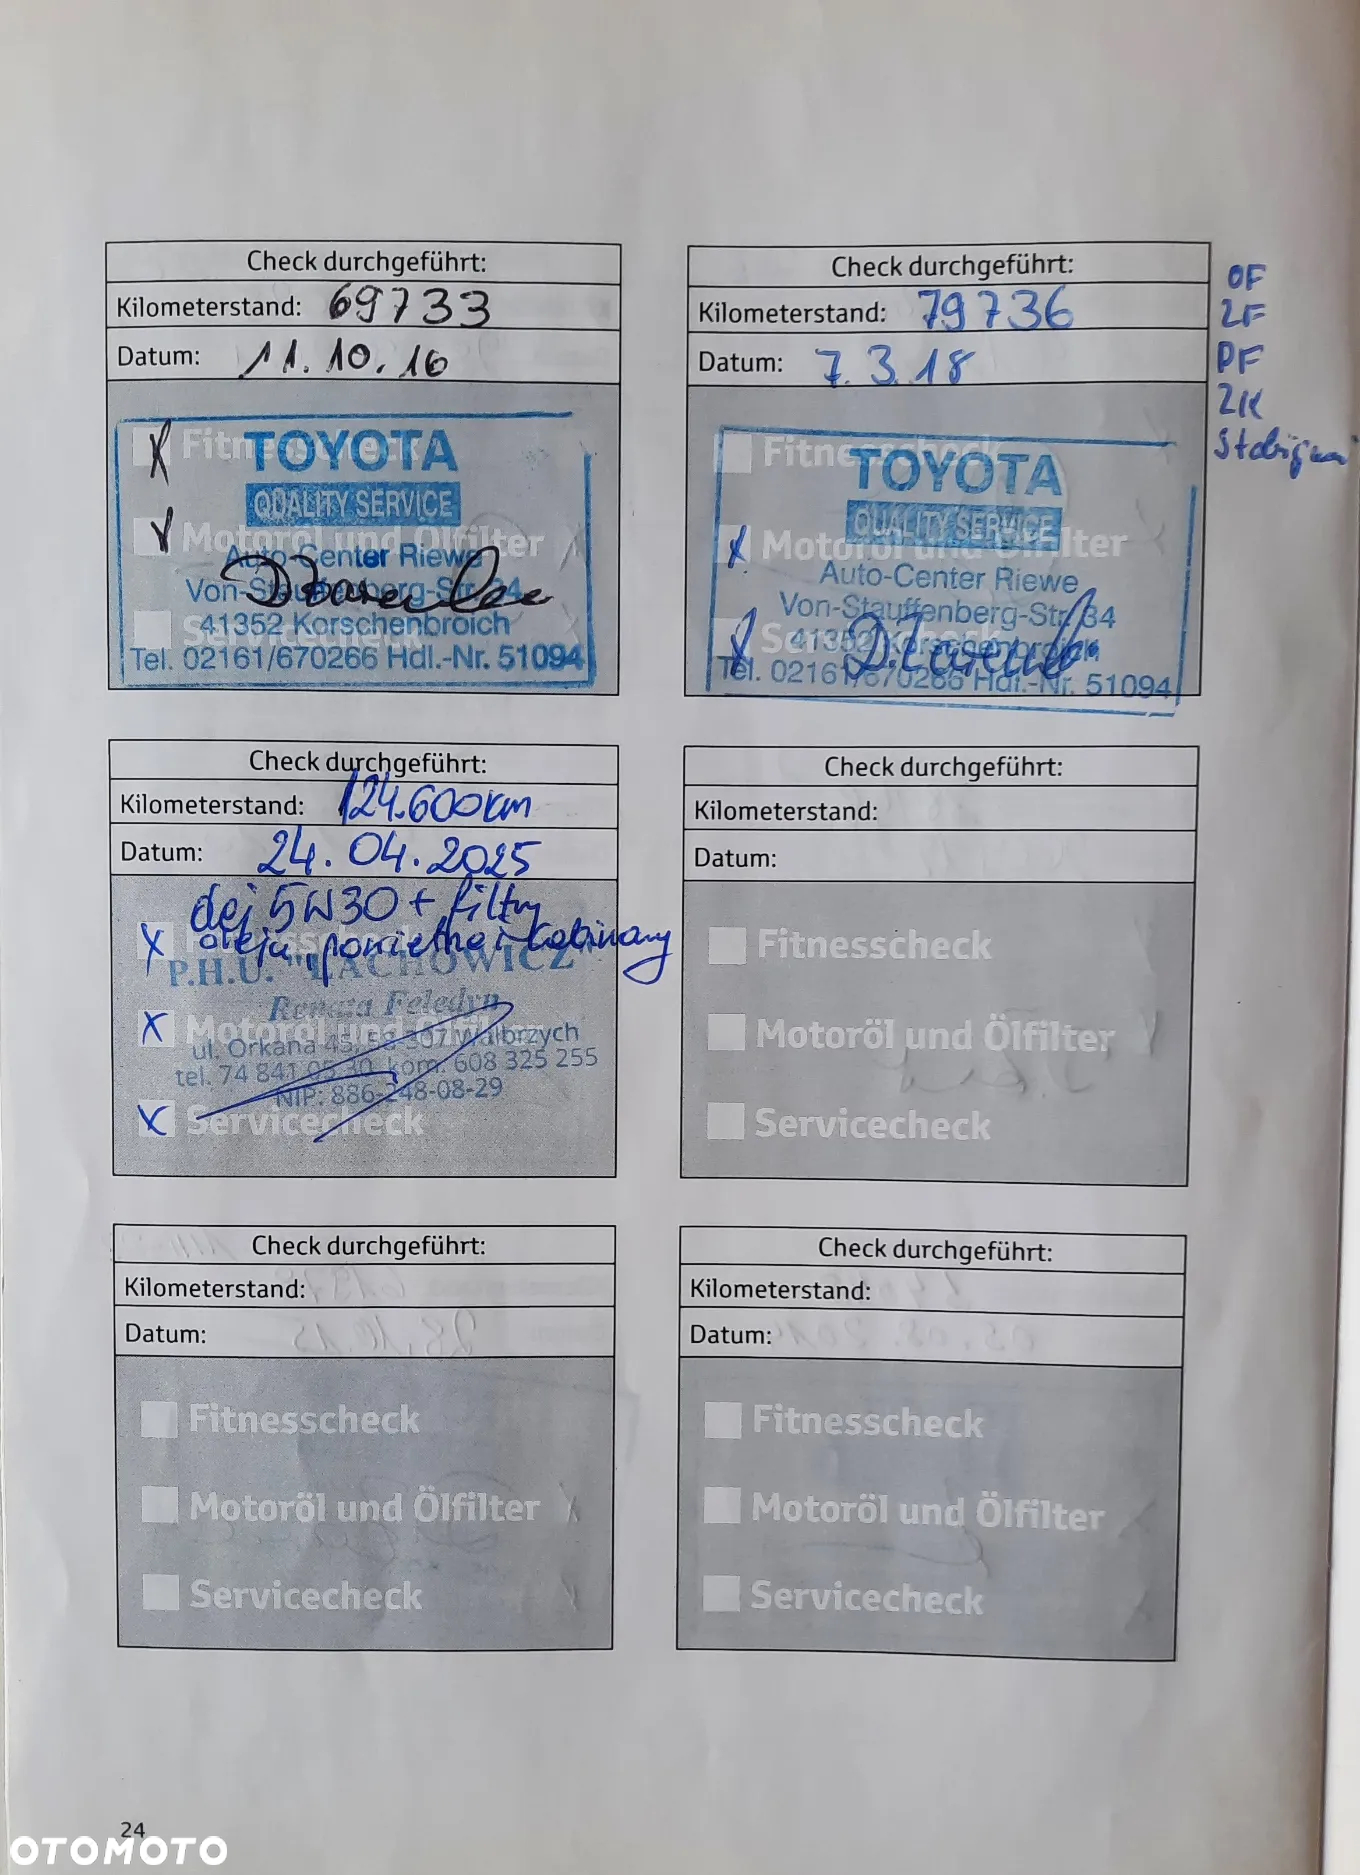 Check durchgeführt:
Kilometerstand: 69733
Datum: 11.10.16
Fitnesscheck
TOYOTA
QUALITY SERVICE
Motoröl und Ölfilter
Auto-Center Riewe
Von-Stauffenberg-Str. 34
41352 Korschenbroich
Servicecheck
Tel. 02161/670266 Hdl.-Nr. 51094
Check durchgeführt:
Kilometerstand: 79736
Datum: 7.3.18
Fitnesscheck
TOYOTA
QUALITY SERVICE
Motoröl und Ölfilter
Auto-Center Riewe
Von-Stauffenberg-Str. 34
41352 Korschenbroich
Servicecheck
Tel. 02161/670266 Hdl.-Nr. 51094
OF
2F
PF
2K
Check durchgeführt:
Kilometerstand: 124.600km
Datum: 24.04.2025
olej 5W30 + filtry
oleju, powietrza i kabinowy
Fitnesscheck
P.H.U. "LACHOWICZ"
Renata Feledyn
Motoröl und Ölfilter
ul. Orkana 45, 58-307 Wałbrzych
tel. 74 841 05 30, kom. 608 325 255
NIP: 886-248-08-29
Servicecheck
Check durchgeführt:
Kilometerstand:
Datum:
Fitnesscheck
Motoröl und Ölfilter
Servicecheck
Check durchgeführt:
Kilometerstand:
Datum:
Fitnesscheck
Motoröl und Ölfilter
Servicecheck
Check durchgeführt:
Kilometerstand:
Datum:
Fitnesscheck
Motoröl und Ölfilter
Servicecheck
24
OTOMOTO